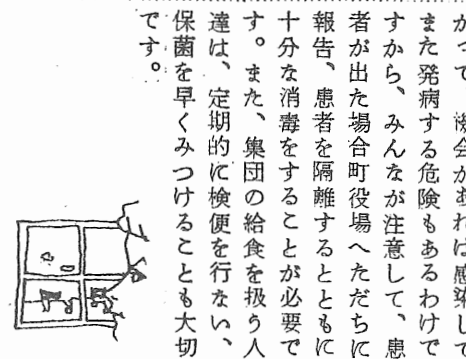 かって 機会があれば感染して
また発病する危険もあるわけで
すから、みんなが注意して、患
者が出た場合町役場へただちに
報告、患者を隔離するとともに
十分な消毒をすることが必要で
す。また、集団の給食を扱う人
達は、定期的に検便を行ない、
保菌を早くみつけることも大切
です。